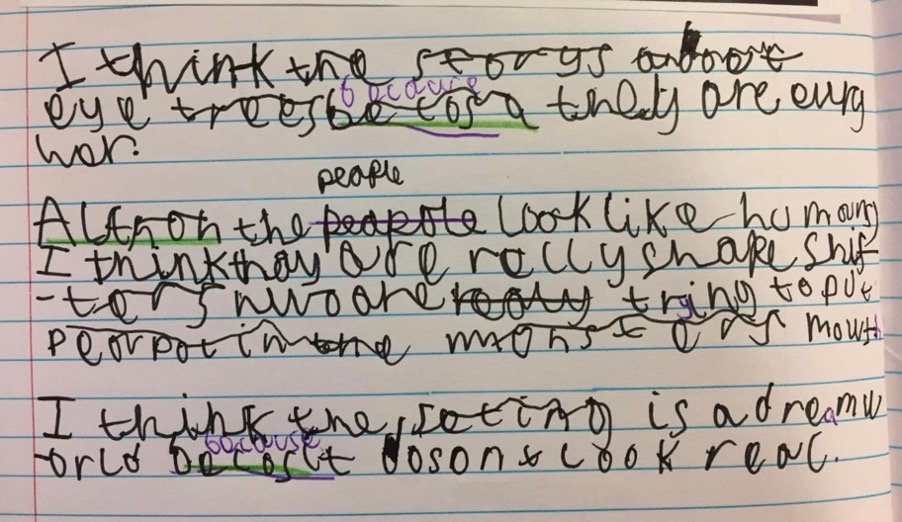 I think the storys about
because
eye trees becosa they are eurg
wor.
people
Althoh the peapole look like humans
I think thay are relly shape shif
-ters who are reaty trying to put
peorpot in the monsters mouth
I think the seting is a dreamw
because
orld becost it dosont look real.